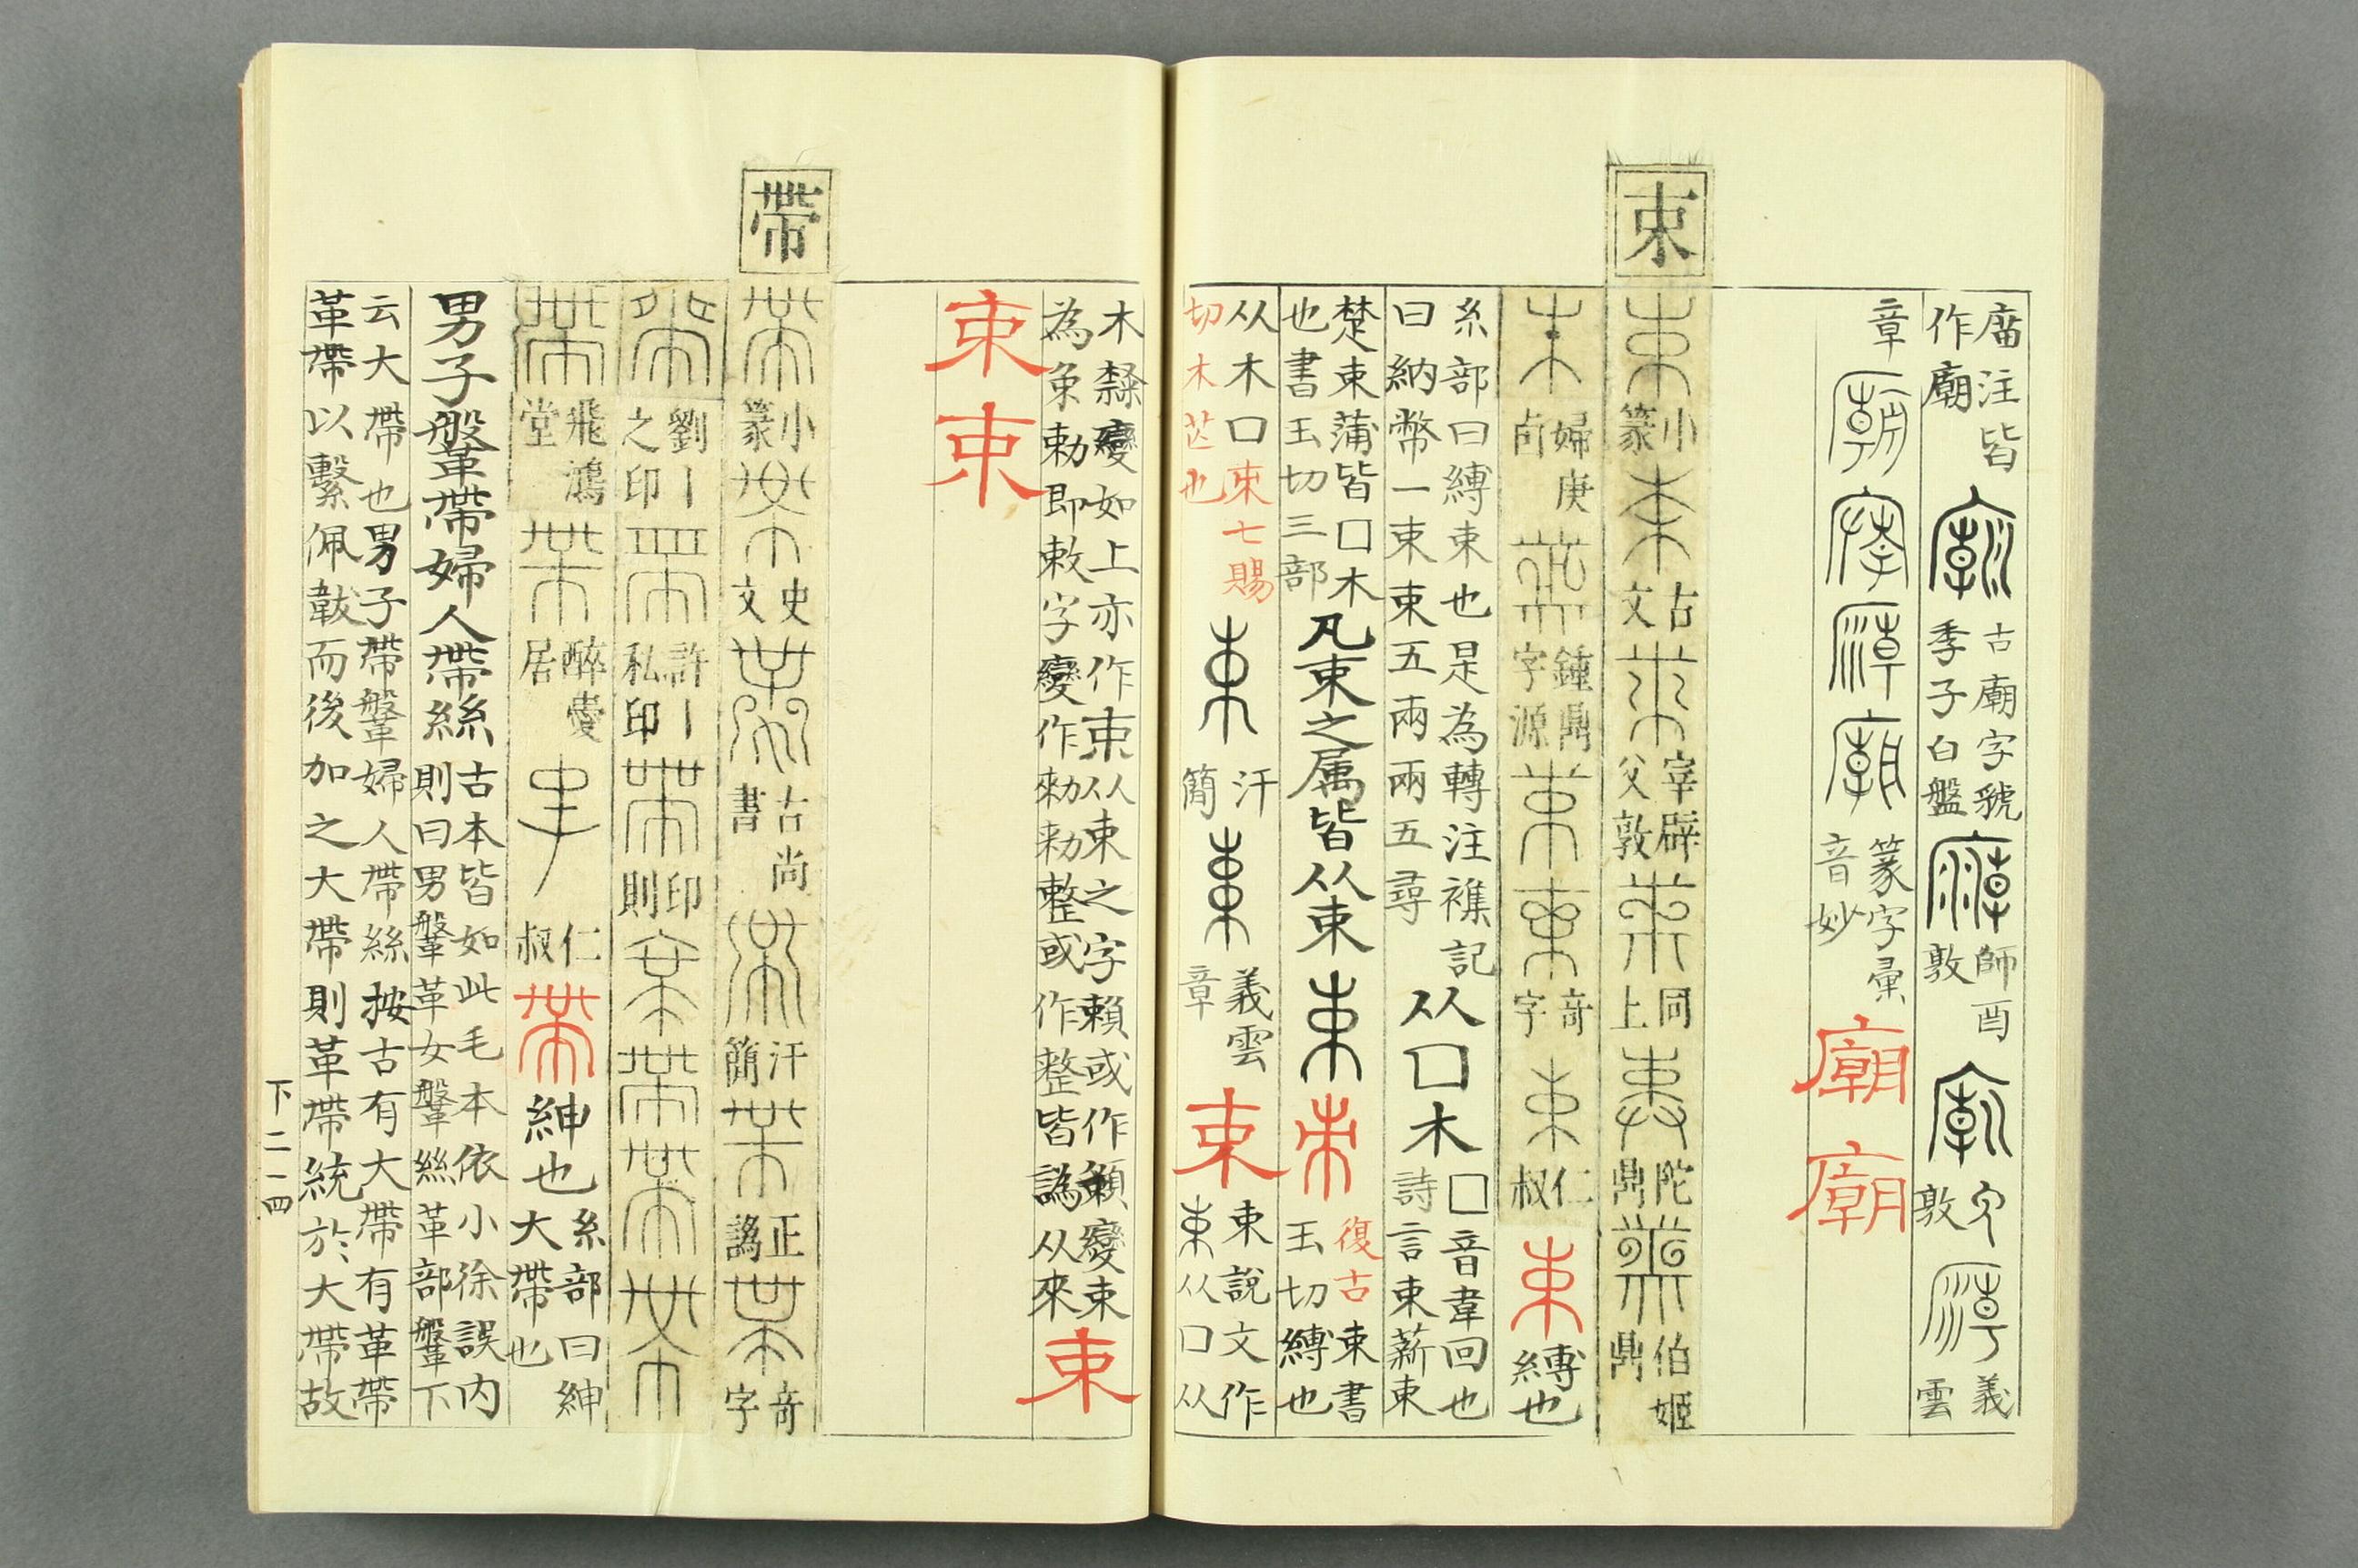 廟注皆
作廟
古廟字虢
季子白盤
師酉
敦
敦
義
雲
章
篆字彙
音妙
廟廟
束
小
篆
古
文
宰辟
父敦
同
上
陀
鼎
伯姬
鼎
婦庚
卣
鐘鼎
字源
奇
字
仁
叔
束縛也
糸部曰縛束也是為轉注襍記
曰納幣一束束五兩兩五尋
从囗木
囗音韋回也
詩言束薪束
楚束蒲皆囗木
也書玉切三部
凡束之属皆从束
束
復古束書
玉切縛也
从木囗束七賜
切木芒也
汗
簡
義雲
章
束
束說文作
束从口从
木隸變如上亦作束从束之字賴或作頼變束
為𠂹勅即敕字變作勑勅整或作整皆譌从來
束
束束
帶
小
篆
史
文
古尚
書
汗
簡
正
譌
奇
字
劉丨
之印
許丨
私印
印
則
飛鴻
堂
醉愛
居
仁
叔
帶紳也
糸部曰紳
大帶也
男子鞶帶婦人帶絲
古本皆如此毛本依小徐誤内
則曰男鞶革女鞶絲革部鞶下
云大帶也男子帶鞶婦人帶絲按古有大帶有革帶
革帶以繫佩韍而後加之大帶則革帶統於大帶故
下二一四